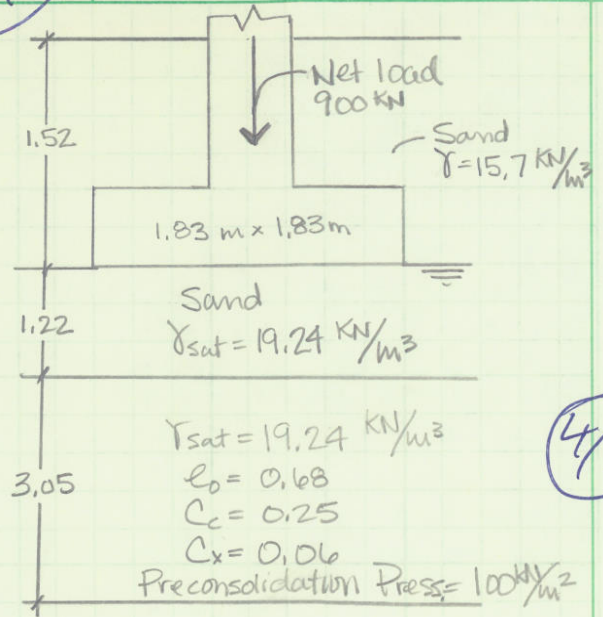 Net load
900 KN
1.52
Sand
γ=15,7 KN/m³
1.83 m × 1.83 m
Sand
γsat = 19.24 KN/m³
1.22
γsat = 19.24 KN/m³
e₀ = 0.68
3,05
Cc = 0.25
Cx = 0,06
Preconsolidation Press = 100 KN/m²
4/